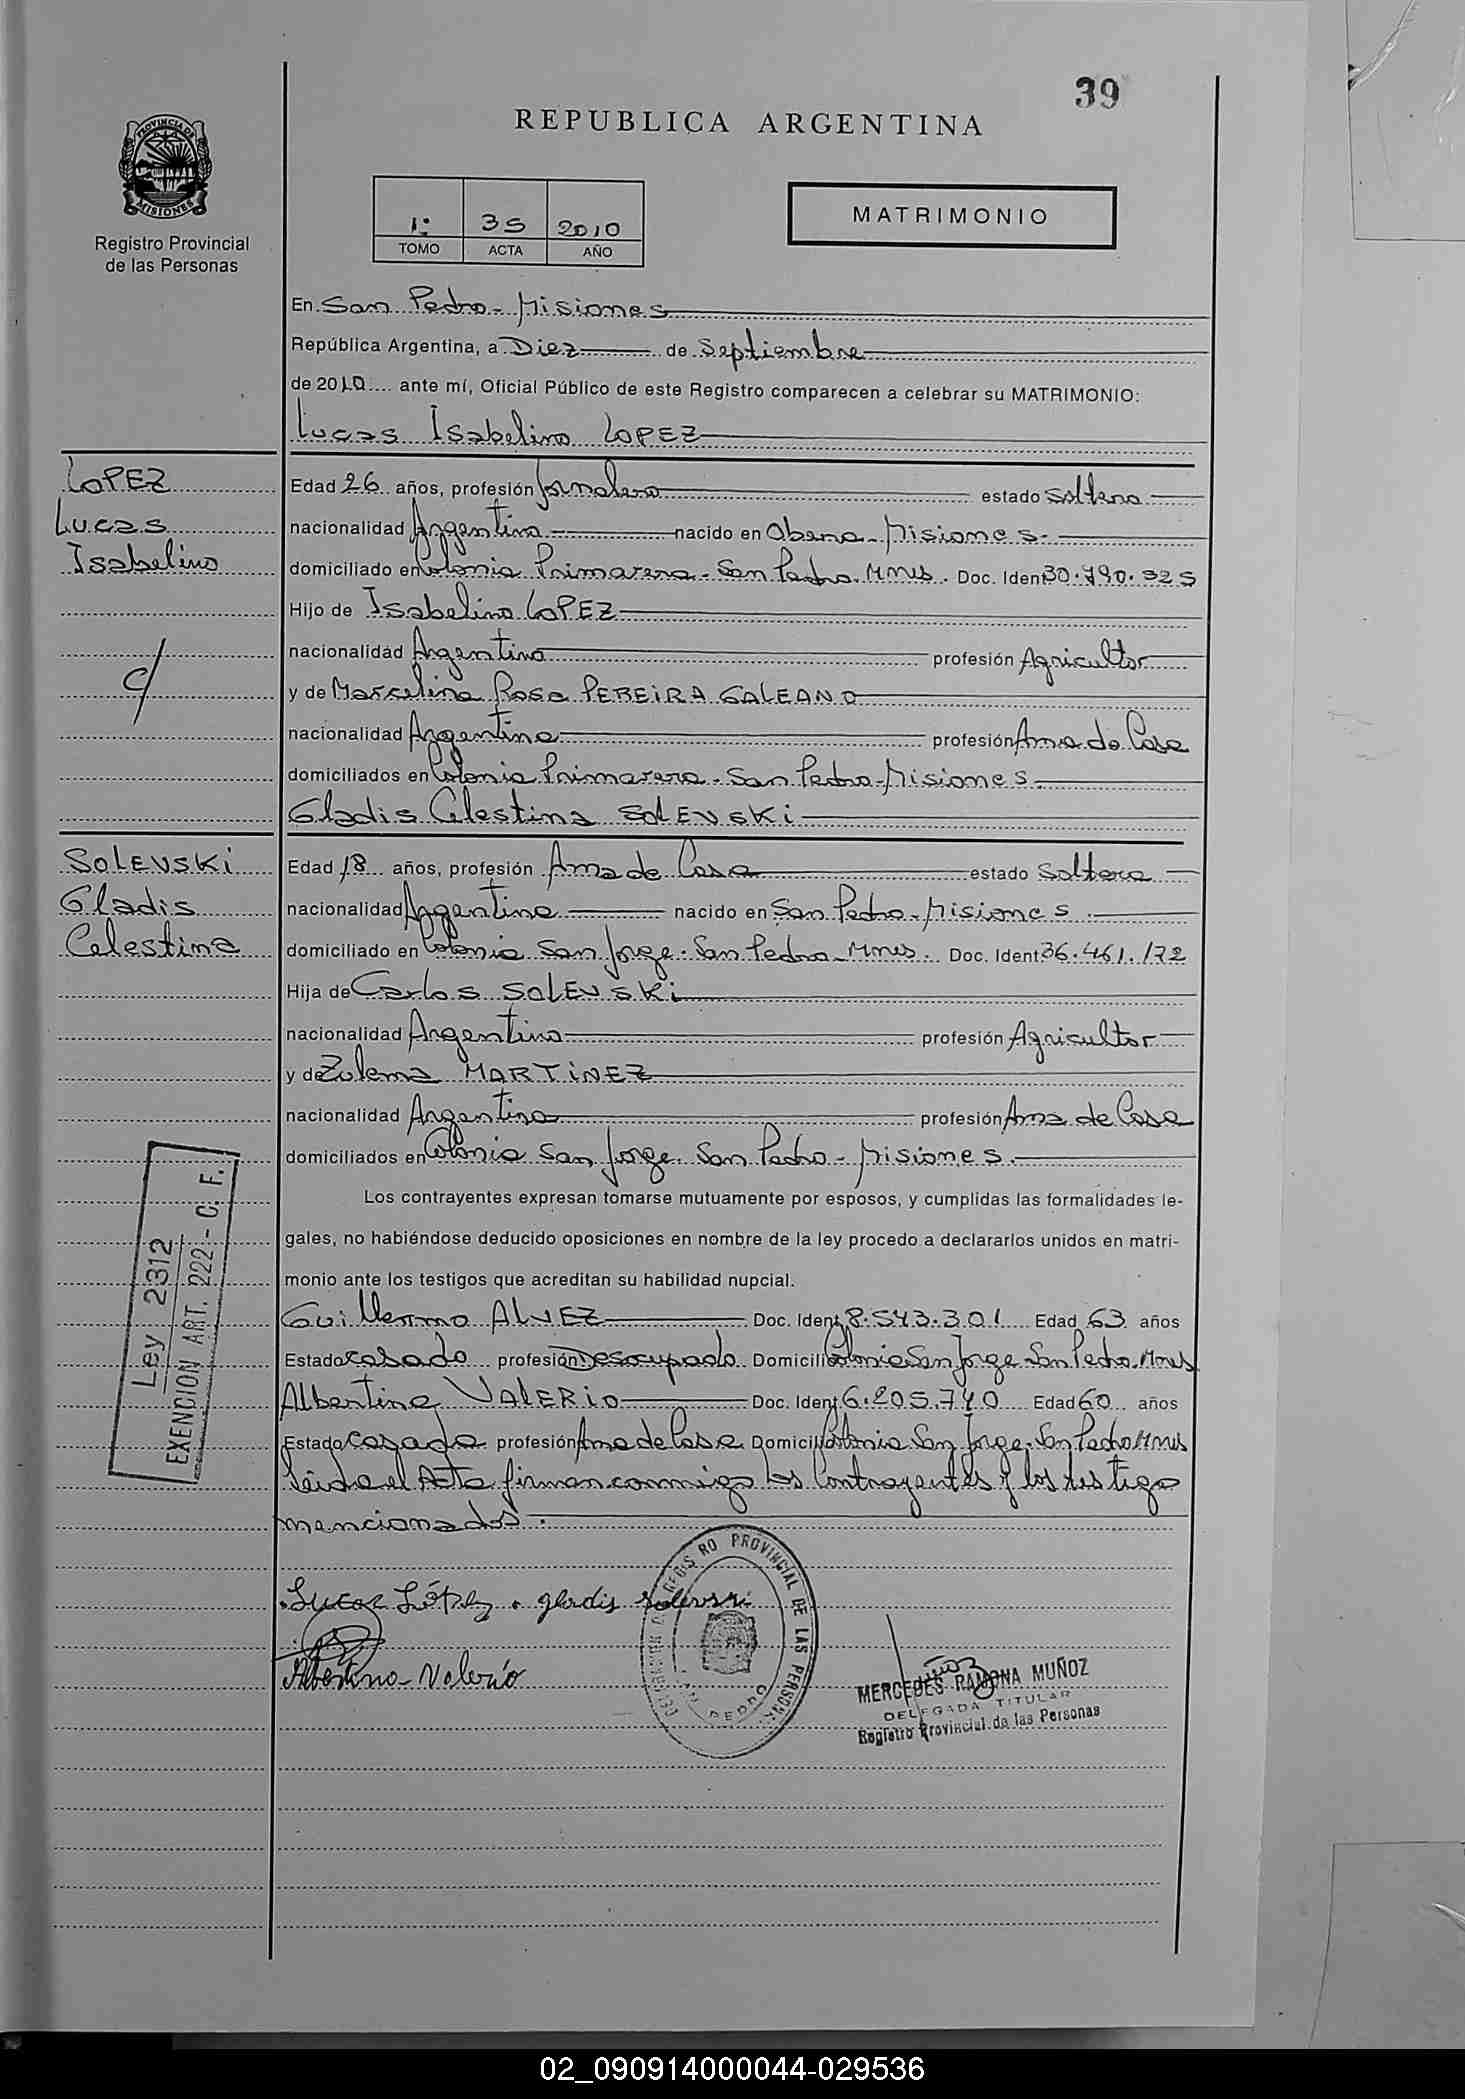 39
REPUBLICA ARGENTINA
PROVINCIA DE
MISIONES
Registro Provincial
de las Personas
1º 35 2010
TOMO ACTA AÑO
MATRIMONIO
En San Pedro - Misiones
República Argentina, a Diez de Septiembre
de 2010 ante mí, Oficial Público de este Registro comparecen a celebrar su MATRIMONIO:
Lucas Isabelino LOPEZ
LOPEZ
Lucas
Isabelino
c/
Edad 26 años, profesión Jornalero estado Soltero
nacionalidad Argentina nacido en Obera - Misiones.
domiciliado en Colonia Primavera - San Pedro. Mnes. Doc. Iden 30.790.325
Hijo de Isabelino LOPEZ
nacionalidad Argentina profesión Agricultor
y de Marcelina Rosa PEREIRA GALEANO
nacionalidad Argentina profesión Ama de Casa
domiciliados en Colonia Primavera - San Pedro - Misiones.
Gladis Celestina SOLEVSKI
SOLEVSKI
Gladis
Celestina
Edad 18 años, profesión Ama de Casa estado Soltera
nacionalidad Argentina nacido en San Pedro - Misiones.
domiciliado en Colonia San Jorge. San Pedro - Mnes. Doc. Ident 36.461.172
Hija de Carlos SOLEVSKI
nacionalidad Argentina profesión Agricultor
y de Zulema MARTINEZ
nacionalidad Argentina profesión Ama de Casa
domiciliados en Colonia San Jorge. San Pedro - Misiones.
Los contrayentes expresan tomarse mutuamente por esposos, y cumplidas las formalidades le-
gales, no habiéndose deducido oposiciones en nombre de la ley procedo a declararlos unidos en matri-
monio ante los testigos que acreditan su habilidad nupcial.
Ley 2312
EXENCION ART. 222 - C. F.
Guillermo ALVEZ Doc. Ident 8.543.301 Edad 63 años
Estado casado profesión Desocupado Domicili Colonia San Jorge San Pedro. Mnes
Albertina VALERIO Doc. Ident 6.205.740 Edad 60 años
Estado casada profesión Ama de Casa Domicili Colonia San Jorge. San Pedro Mnes
Leida el Acta firman conmigo los Contrayentes y los testigo
mencionados.
Lucas López. gladis solevski
Albertina Valerio
DELEGACION REGIS RO PROVINCIAL DE LAS PERSONAS
SAN PEDRO
MERCEDES RAMONA MUÑOZ
DELEGADA TITULAR
Registro Provincial de las Personas
02_090914000044-029536